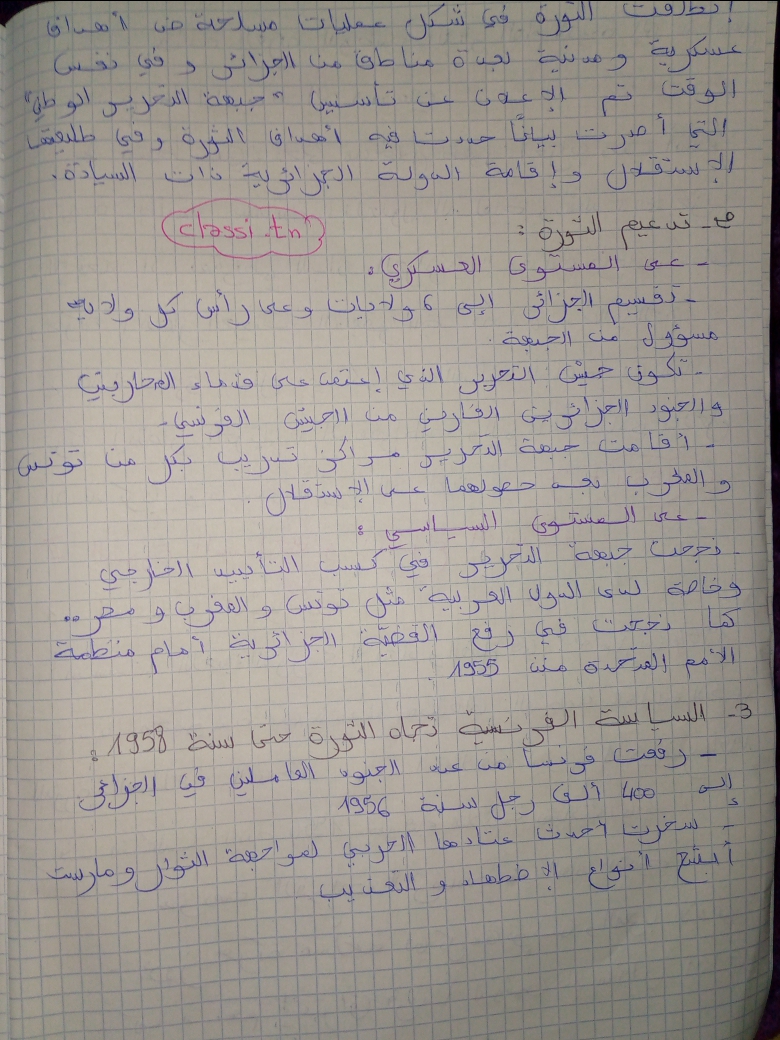 إنطلقت الثورة في شكل عمليات مسلحة ضد أهداف
عسكرية ومدنية بعدة مناطق من الجزائر وفي نفس
الوقت تم الإعلان عن تأسيس "جبهة التحرير الوطني"
التي أصدرت بيانًا حددت فيه أهداف الثورة وفي طليعتها
الإستقلال وإقامة الدولة الجزائرية ذات السيادة.
تدعيم الثورة:
classi.tn
- على المستوى العسكري:
- تقسيم الجزائر إلى 6 ولايات وعلى رأس كل ولاية
مسؤول من الجبهة.
- تكون جيش التحرير الذي إعتمد على قدماء المحاربين
والجنود الجزائريين الفارين من الجيش الفرنسي.
- أقامت جبهة التحرير مراكز تدريب بكل من تونس
والمغرب بعد حصولهما على الإستقلال.
- على المستوى السياسي:
- نجحت جبهة التحرير في كسب التأييد الخارجي
وخاصة لدى الدول العربية مثل تونس والمغرب ومصر..
كما نجحت في رفع القضيّة الجزائرية أمام منظمة
الأمم المتحدة منذ 1955.
3- السياسة الفرنسية تجاه الثورة حتى سنة 1958:
- رفعت فرنسا من عدد الجنود العاملين في الجزائر
إلى 400 ألف رجل سنة 1956
- سخرت أحدث عتادها الحربي لمواجهة الثوار ومارست
أبشع أنواع الإضطهاد والتعذيب